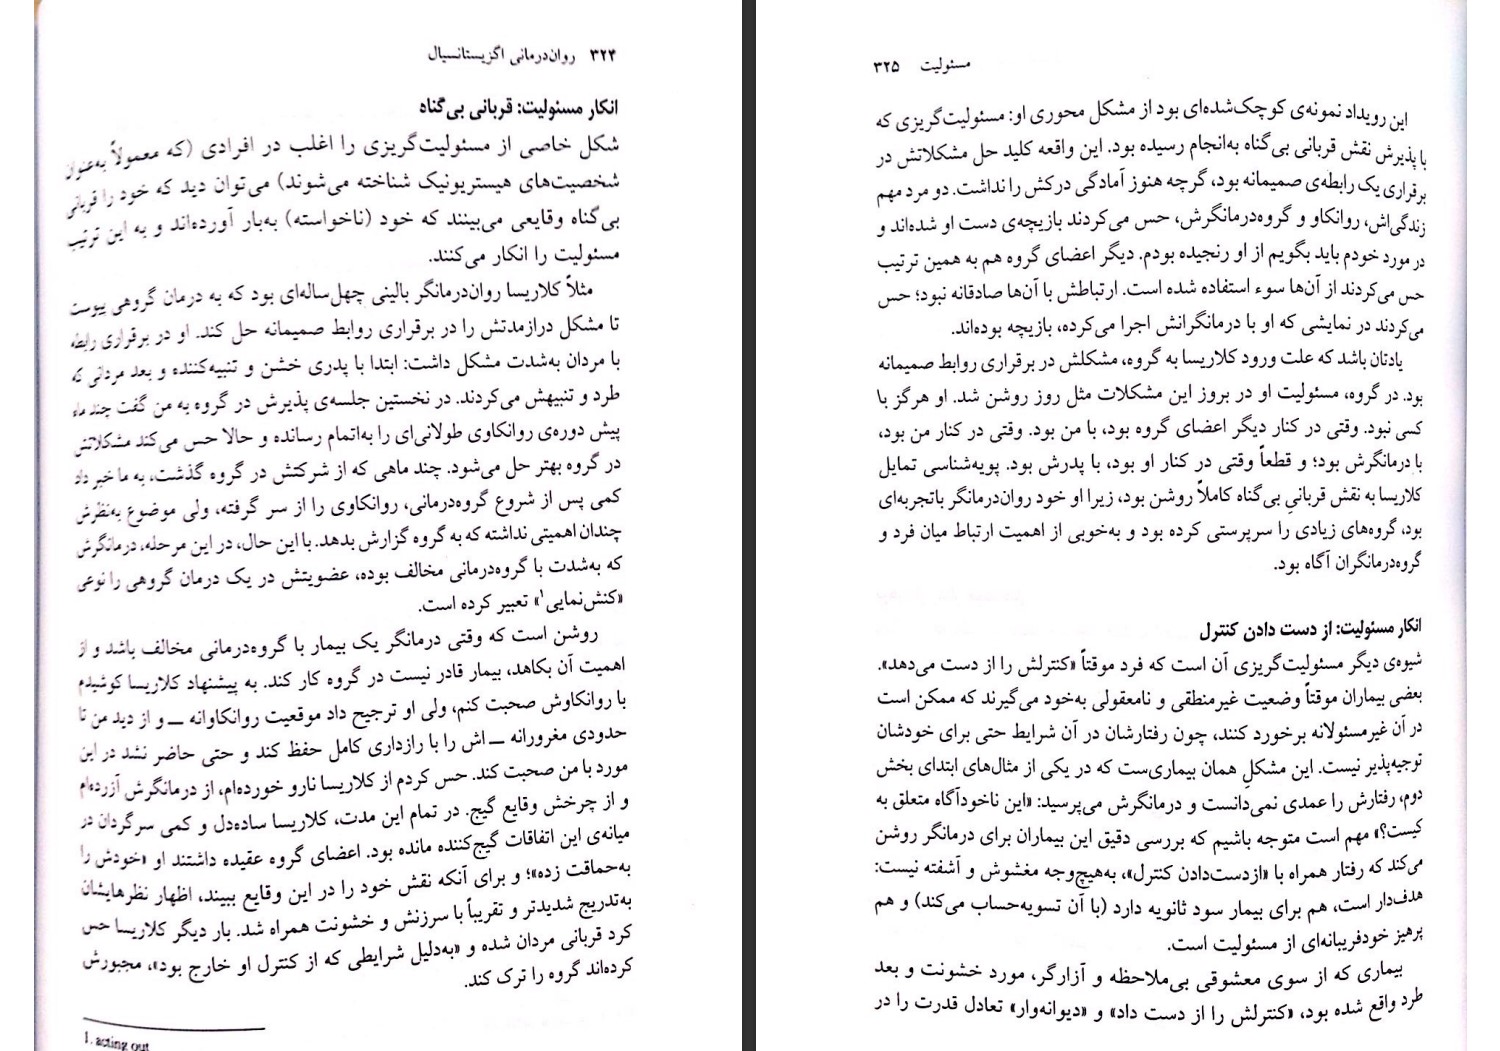 ۳۲۴ روان‌درمانی اگزیستانسیال
انکار مسئولیت: قربانی بی‌گناه
شکل خاصی از مسئولیت‌گریزی را اغلب در افرادی (که معمولاً به‌عنوان
شخصیت‌های هیستریونیک شناخته می‌شوند) می‌توان دید که خود را قربانی
بی‌گناه وقایعی می‌بینند که خود (ناخواسته) به‌بار آورده‌اند و به این ترتیب
مسئولیت را انکار می‌کنند.
مثلاً کلاریسا روان‌درمانگر بالینی چهل‌ساله‌ای بود که به درمان گروهی پیوست
تا مشکل درازمدتش را در برقراری روابط صمیمانه حل کند. او در برقراری رابطه
با مردان به‌شدت مشکل داشت: ابتدا با پدری خشن و تنبیه‌کننده و بعد مردانی که
طرد و تنبیهش می‌کردند. در نخستین جلسه‌ی پذیرش در گروه به من گفت چند ماه
پیش دوره‌ی روانکاوی طولانی‌ای را به‌اتمام رسانده و حالا حس می‌کند مشکلاتش
در گروه بهتر حل می‌شود. چند ماهی که از شرکتش در گروه گذشت، به ما خبر داد
کمی پس از شروع گروه‌درمانی، روانکاوی را از سر گرفته، ولی موضوع به‌نظرش
چندان اهمیتی نداشته که به گروه گزارش بدهد. با این حال، در این مرحله، درمانگرش
که به‌شدت با گروه‌درمانی مخالف بوده، عضویتش در یک درمان گروهی را نوعی
«کنش‌نمایی۱» تعبیر کرده است.
روشن است که وقتی درمانگر یک بیمار با گروه‌درمانی مخالف باشد و از
اهمیت آن بکاهد، بیمار قادر نیست در گروه کار کند. به پیشنهاد کلاریسا کوشیدم
با روانکاوش صحبت کنم، ولی او ترجیح داد موقعیت روانکاوانه ــ و از دید من تا
حدودی مغرورانه ــ اش را با رازداری کامل حفظ کند و حتی حاضر نشد در این
مورد با من صحبت کند. حس کردم از کلاریسا نارو خورده‌ام، از درمانگرش آزرده‌ام
و از چرخش وقایع گیج. در تمام این مدت، کلاریسا ساده‌دل و کمی سرگردان در
میانه‌ی این اتفاقات گیج‌کننده مانده بود. اعضای گروه عقیده داشتند او «خودش را
به‌حماقت زده»؛ و برای آنکه نقش خود را در این وقایع ببیند، اظهار نظرهایشان
به‌تدریج شدیدتر و تقریباً با سرزنش و خشونت همراه شد. بار دیگر کلاریسا حس
کرد قربانی مردان شده و «به‌دلیل شرایطی که از کنترل او خارج بود»، مجبورش
کرده‌اند گروه را ترک کند.
1. acting out
مسئولیت ۳۲۵
این رویداد نمونه‌ی کوچک‌شده‌ای بود از مشکل محوری او: مسئولیت‌گریزی که
با پذیرش نقش قربانی بی‌گناه به‌انجام رسیده بود. این واقعه کلید حل مشکلاتش در
برقراری یک رابطه‌ی صمیمانه بود، گرچه هنوز آمادگی درکش را نداشت. دو مرد مهم
زندگی‌اش، روانکاو و گروه‌درمانگرش، حس می‌کردند بازیچه‌ی دست او شده‌اند و
در مورد خودم باید بگویم از او رنجیده بودم. دیگر اعضای گروه هم به همین ترتیب
حس می‌کردند از آن‌ها سوء استفاده شده است. ارتباطش با آن‌ها صادقانه نبود؛ حس
می‌کردند در نمایشی که او با درمانگرانش اجرا می‌کرده، بازیچه بوده‌اند.
یادتان باشد که علت ورود کلاریسا به گروه، مشکلش در برقراری روابط صمیمانه
بود. در گروه، مسئولیت او در بروز این مشکلات مثل روز روشن شد. او هرگز با
کسی نبود. وقتی در کنار دیگر اعضای گروه بود، با من بود. وقتی در کنار من بود،
با درمانگرش بود؛ و قطعاً وقتی در کنار او بود، با پدرش بود. پویه‌شناسی تمایل
کلاریسا به نقش قربانیِ بی‌گناه کاملاً روشن بود، زیرا او خود روان‌درمانگر باتجربه‌ای
بود، گروه‌های زیادی را سرپرستی کرده بود و به‌خوبی از اهمیت ارتباط میان فرد و
گروه‌درمانگران آگاه بود.
انکار مسئولیت: از دست دادن کنترل
شیوه‌ی دیگر مسئولیت‌گریزی آن است که فرد موقتاً «کنترلش را از دست می‌دهد».
بعضی بیماران موقتاً وضعیت غیرمنطقی و نامعقولی به‌خود می‌گیرند که ممکن است
در آن غیرمسئولانه برخورد کنند، چون رفتارشان در آن شرایط حتی برای خودشان
توجیه‌پذیر نیست. این مشکلِ همان بیماری‌ست که در یکی از مثال‌های ابتدای بخش
دوم، رفتارش را عمدی نمی‌دانست و درمانگرش می‌پرسید: «این ناخودآگاه متعلق به
کیست؟» مهم است متوجه باشیم که بررسی دقیق این بیماران برای درمانگر روشن
می‌کند که رفتار همراه با «ازدست‌دادن کنترل»، به‌هیچ‌وجه مغشوش و آشفته نیست:
هدف‌دار است، هم برای بیمار سود ثانویه دارد (با آن تسویه‌حساب می‌کند) و هم
پرهیز خودفریبانه‌ای از مسئولیت است.
بیماری که از سوی معشوقی بی‌ملاحظه و آزارگر، مورد خشونت و بعد
طرد واقع شده بود، «کنترلش را از دست داد» و «دیوانه‌وار» تعادل قدرت را در